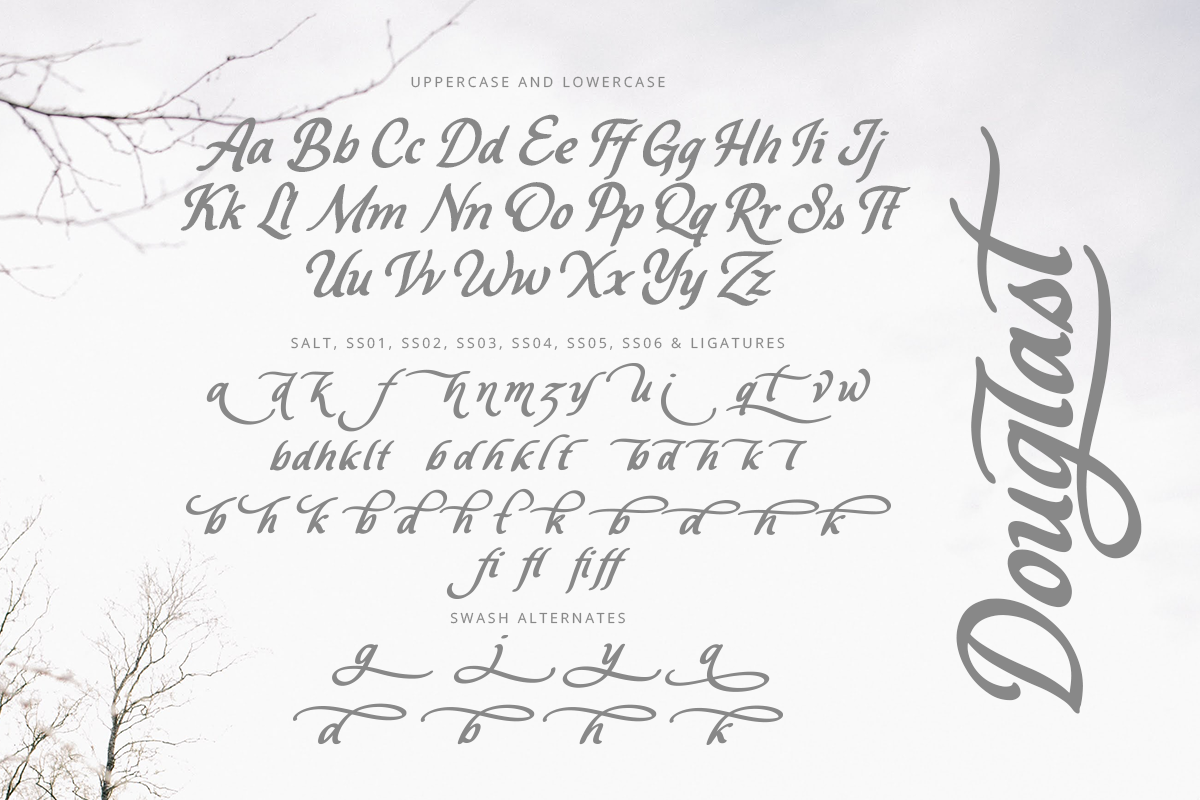 UPPERCASE AND LOWERCASE
Aa Bb Cc Dd Ee Ff Gg Hh Ii Jj
Kk Ll Mm Nn Oo Pp Qq Rr Ss Tt
Uu Vv Ww Xx Yy Zz
SALT, SS01, SS02, SS03, SS04, SS05, SS06 & LIGATURES
a d k f h n m z y u i q t v w
b d h k l t b d h k l t b d h k l
b h k b d h t k b d h k
fi fl fi ff
SWASH ALTERNATES
g j y q
d b h k
Douglast